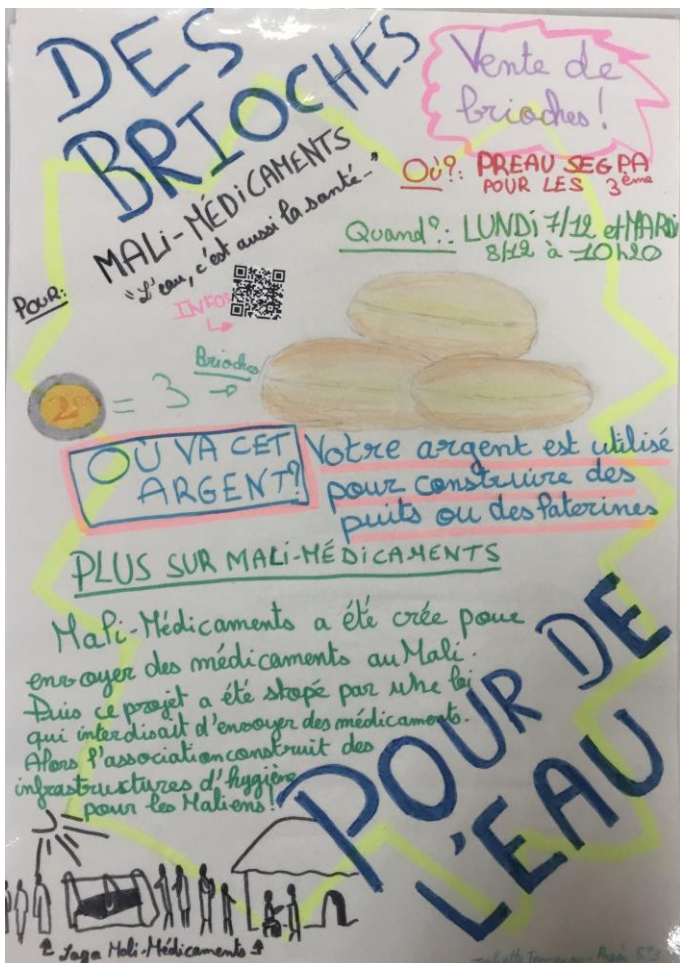 DES
BRIOCHES
Vente de
brioches!
Où?: PREAU SEGPA
POUR LES 3ème
Quand?: LUNDI 7/12 et MARDI
8/12 à 10h20
POUR:
MALI-MÉDICAMENTS
"L'eau, c'est aussi la santé..."
INFOS
Brioches
2 = 3
OÙ VA CET
ARGENT?
Votre argent est utilisé
pour construire des
puits ou des laterines
PLUS SUR MALI-MÉDICAMENTS
Mali-Médicaments a été crée pour
envoyer des médicaments au Mali.
Puis ce projet a été stopé par une loi
qui interdisait d'envoyer des médicaments.
Alors l'association construit des
infrastructures d'hygiène
pour les Maliens!
POUR DE
L'EAU
Logo Mali-Médicaments